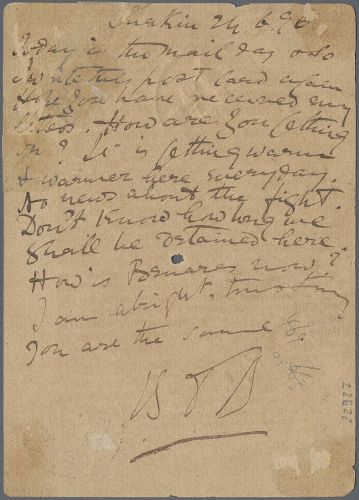 Suakin 24.6.96
Today is the mail day & so
I write this post card again
Hope you have received my
letters. How are you getting
on? It is getting warm
& warmer here everyday.
No news about the fight.
Don't know how long we
shall be detained here.
How is Benares now?
I am alright, trusting
you are the same
22922